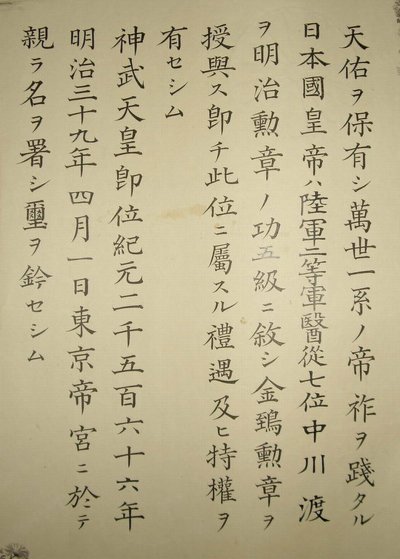 天佑ヲ保有シ萬世一系ノ帝祚ヲ踐タル
日本國皇帝ハ陸軍二等軍醫從七位中川渡
ヲ明治勲章ノ功五級ニ敘シ金鵄勲章ヲ
授與ス卽チ此位ニ屬スル禮遇及ヒ特權ヲ
有セシム
神武天皇卽位紀元二千五百六十六年
明治三十九年四月一日東京帝宮ニ於テ
親ラ名ヲ署シ璽ヲ鈐セシム